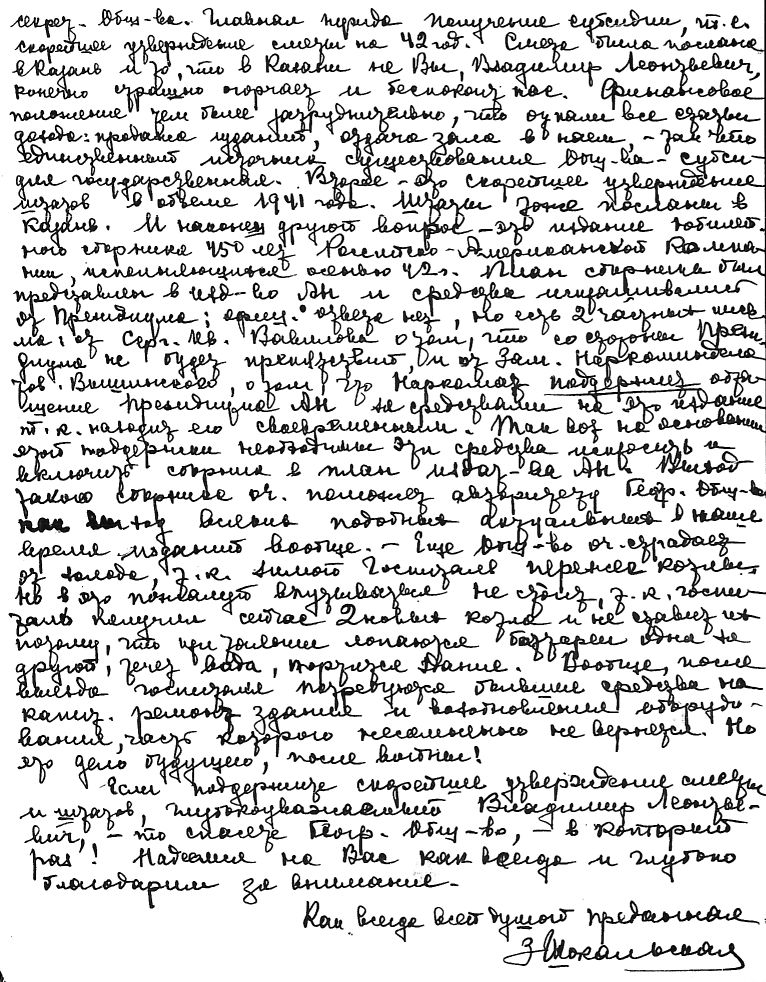 секрет. Общ-ва. Главная нужда получение субсидии, т.е.
скорейшее утверждение сметы на 42 год. Смета была послана
в Казань и то, что в Казани не Вы, Владимир Леонтьевич,
конечно страшно огорчает и беспокоит нас. Финансовое
положение тем более затруднительно, что отпали все статьи
дохода: продажа изданий, отдача зала в наем, – так что
единственный источник существования Общ-ва – субси-
дия государственная. Второе – это скорейшее утверждение
штатов в объеме 1941 года. Штаты тоже посланы в
Казань. И наконец другой вопрос – это издание юбилей-
ного сборника 150 лет Российско-Американской Компа-
нии, исполняющихся осенью 42 г. План сборника был
представлен в изд-во АН и средства испрашивались
от Президиума; ответа нет, но есть 2 частных пись-
ма: от Серг. Ив. Вавилова о том, что со стороны Прези-
диума не будет препятствий, и от Зам. Наркоминдела
тов. Вышинского, о том что Наркомат поддержит обра-
щение Президиума АН за средствами на это издание
т.к. находит его своевременным. Так вот на основании
этой поддержки необходимо эти средства испросить и
включить сборник в план издат-ва АН. Выход
такого сборника оч. поможет авторитету Геогр. Общ-ва
как выход всяких подобных актуальных в наше
время изданий вообще. – Еще Общ-во оч. страдает
от холода, т.к. зимой Госпиталь пережег котлы
но в это пожалуй впутываться не стоит, т.к. госпи-
таль получил сейчас 2 новых котла и не ставит их
потому, что при топлении лопаются баттареи одна за
другой, течет вода, портится здание. Вообще, после
выезда госпиталя потребуются большие средства на
капит. ремонт здания и возобновление оборудо-
вания, часть которого несомненно не вернется. Но
это дело будущего, после войны!
Если поддержите скорейшее утверждение сметы
и штатов, глубокоуважаемый Владимир Леонтье-
вич, – то спасете Геогр. Общ-во, – в который
раз! Надеемся на Вас как всегда и глубоко
благодарим за внимание.
Как всегда всей душой преданная
З Шокальская